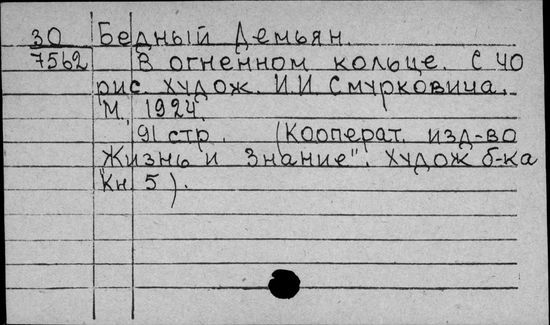 30 Бедный Демьян.
7562 В огненном кольце. С 40
рис. худож. И.И Смурковича.
М. 1924.
91 стр. (Кооперат. изд-во
Жизнь и Знание". Худож б-ка
Кн 5).